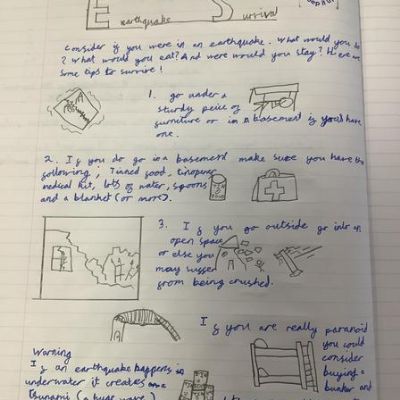 Earthquake Survival
Consider if you were in an earthquake. What would you do
? What would you eat? And were would you stay? Here are
some tips to survive!
1. go under a
sturdy peice of
furniture or in a basement if you have
one.
2. If you do go in a basement make sure you have the
following; Tinned food, tinopener
medical kit, lots of water, spoons
and a blanket (or more).
3. If you go outside go into an
open space
or else you
may suffer
from being crushed.
If you are really paranoid
you could
consider
buying a
bunker and
Warning
If an earthquake happens in
underwater it creates a
Tsunami (a huge wave)